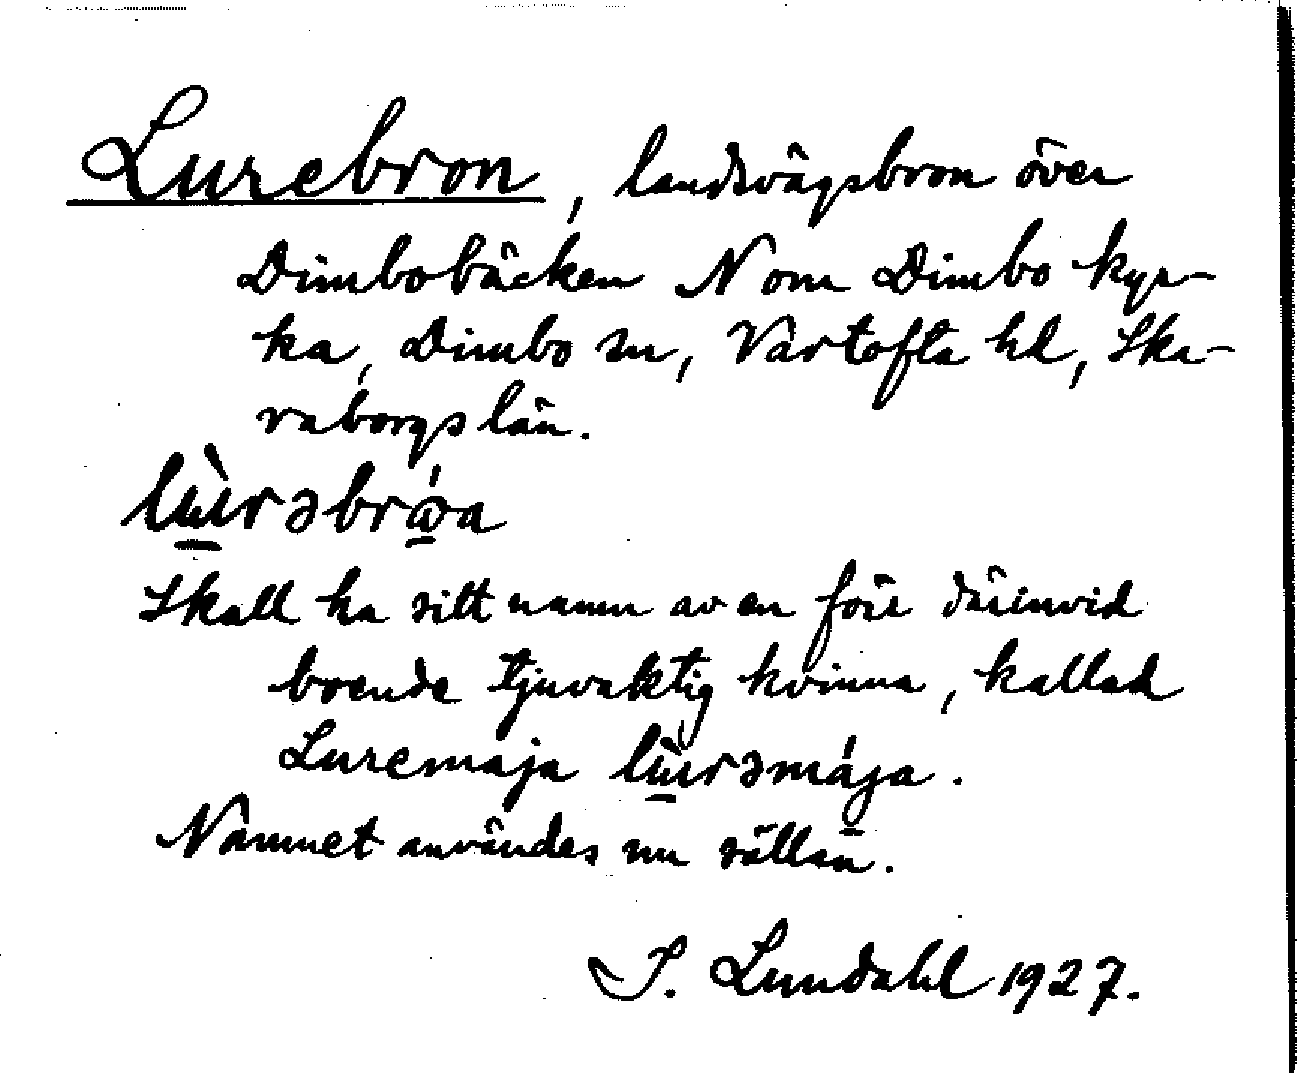 Lurebron, landsvägsbron över
Dimbobäcken N om Dimbo kyr-
ka, Dimbo sn, Vartofta hd, Ska-
raborgs län.
lùrəbrǿa
Skall ha sitt namn av en förr därinvid
boende tjuvaktig kvinna, kallad
Luremaja lùrəmája.
Namnet användes nu sällan.
I. Lundahl 1927.